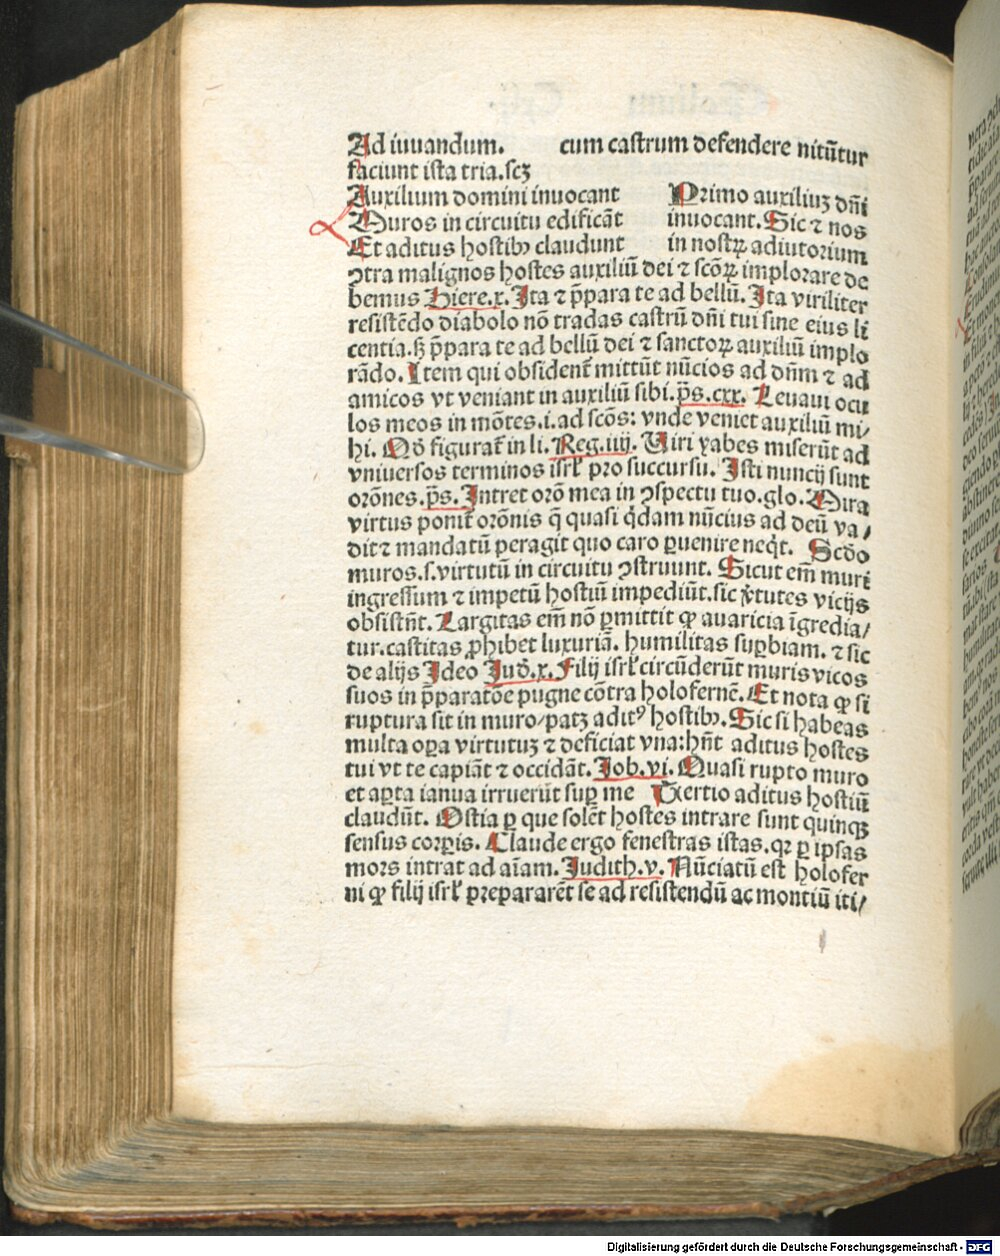 Ad iuuandum. cum castrum defendere nitūtur
faciunt ista tria.scꝫ
Auxilium domini inuocant Primo auxiliuꝫ dn̄i
Muros in circuitu edificāt inuocant. Sic ⁊ nos
Et aditus hostibꝰ claudunt in nostrꝝ adiutorium
ꝯtra malignos hostes auxiliū dei ⁊ scōꝝ implorare de
bemus Hiere.x. Ita ⁊ p̄para te ad bellū. Ita viriliter
resistēdo diabolo nō tradas castrū dn̄i tui sine eius li
centia.sꝫ p̄para te ad bellū dei ⁊ sanctoꝝ auxiliū implo
rādo. Item qui obsident᷑ mittūt nūcios ad dn̄m ⁊ ad
amicos vt veniant in auxiliū sibi.p̄s.cxx. Leuaui ocu
los meos in mōtes.i.ad scōs: vnde veniet auxiliū mi⸗
hi. Qd̄ figurat᷑ in li. Reg.iiij. Uiri yabes miserūt ad
vniuersos terminos isrl̄ pro succursu. Isti nuncij sunt
orōnes.p̄s. Intret orō mea in ꝯspectu tuo.glo. Mira
virtus ponit᷑ orōnis q̄ quasi q̇dam nūcius ad deū va⸗
dit ⁊ mandatū peragit quo caro ꝑuenire neq̇t. Scd̄o
muros.s.virtutū in circuitu ꝯstruunt. Sicut em̄ muri
ingressum ⁊ impetū hostiū impediūt.sic v̓tutes vicijs
obsistn̄t. Largitas em̄ nō ꝑmittit ꝙ auaricia īgredia⸗
tur.castitas ꝓhibet luxuriā. humilitas suꝑbiam. ⁊ sic
de alijs Ideo Jud̄.x. Filij isrl̄ circūderūt muris vicos
suos in p̄paratōe pugne cōtra holofernē. Et nota ꝙ si
ruptura sit in muro/patꝫ aditꝰ hostibꝰ. Sic si habeas
multa oꝑa virtutuꝫ ⁊ deficiat vna: hn̄t aditus hostes
tui vt te capiāt ⁊ occidāt. Job.vi. Quasi rupto muro
et aꝑta ianua irruerūt suꝑ me Tertio aditus hostiū
claudūt. Ostia ꝑ que solēt hostes intrare sunt quinqꝫ
sensus corꝑis. Claude ergo fenestras istas.qꝛ ꝑ ipsas
mors intrat ad aīam. Judith.v. Nūciatū est holofer
ni ꝙ filij isrl̄ prepararēt se ad resistendū ac montiū iti⸗
Digitalisierung gefördert durch die Deutsche Forschungsgemeinschaft - DFG